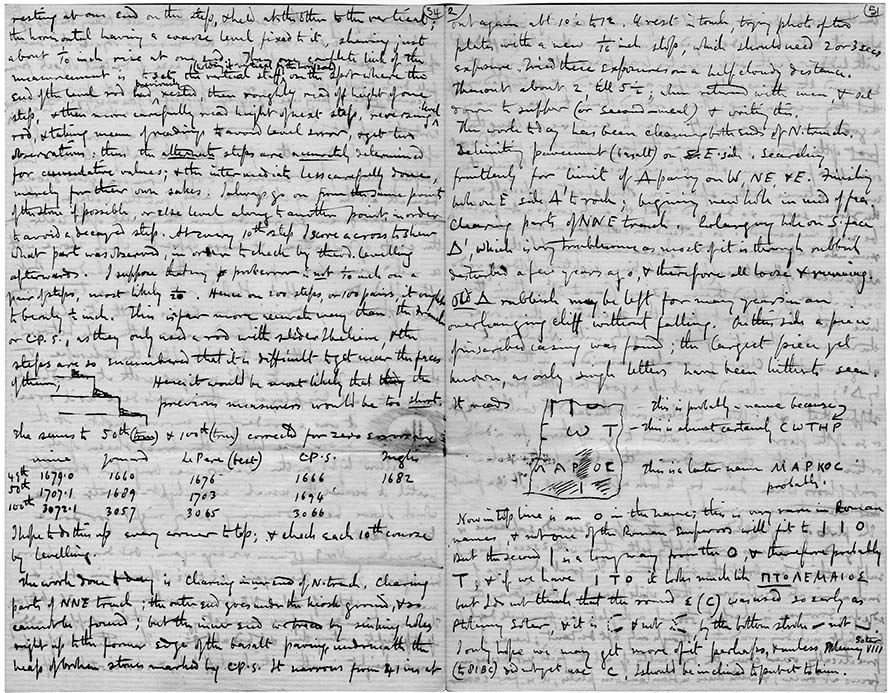 54
resting at one end on the step, & held at the other to the vertical;
the horizontal having a coarse level fixed to it, shewing just
about 1/10 inch rise at one end. The complete link of the
measurement is to set the vertical staff on the spot where the
end of the level rod had previously rested, then roughly read off height of one
step, & then more carefully read height of next step, reversing level
rod, & taking mean of readings to avoid level error, & get two
observations: thus the alternate steps are accurately determined
for cumulative values; & the intermediate less carefully done,
merely for their own sakes. I always go on from the same point
of the stone if possible, or else level along to another point in order
to avoid a decayed step. At every 10th step I score a cross to shew
what part was observed, in order to check by theod. levelling
afterwards. I suppose that my prob error is not 1/10 inch on a
pair of steps, most likely 1/20. Hence on 200 steps, or 100 pairs, it ought
to be only 1/2 inch. This is far more accurate way than the French
or C.P.S., as they only used a rod with sliders I believe, & the
steps are so encumbered that it is difficult to get near the faces
of them;
Hence it would be most likely that the
previous measurers would be too short.
The sums to 50th (true) & 100th (true) corrected for zero errors are
mine Jomard LePere (best) C.P.S. Inglis
49th 1679.0 1660 1676 1666 1682
50th 1707.1 1689 1703 1694
100th 3072.1 3057 3065 3066
I hope to do this up every corner to top; & check each 10th course
by levelling.
The work done today is clearing inner end of N. trench, clearing
parts of NNE trench; the outer end goes under the high ground, & so
cannot be found; but the inner end we traced by sinking holes
right up to the former edge of the basalt paving underneath the
heap of broken stones marked by C.P.S. It narrows from 41 ins at
2
51
out again abt 10 to 12. & rest in tomb, trying photos after
plates with a new 1/16 inch stop, which should need 2 or 3 secs
exposure. Tried three exposures on a half cloudy distance.
Then out about 2, till 5½; when returned with men, & sat
down to supper (or second meal) & writing this.
The work today has been clearing both ends of N. trench.
Delimiting pavement (basalt) on E. side. Searching
fruitlessly for limit of Δ paving on W, NE, & E. Finding
hole on E side Δ' to rock; beginning new hole in mid of face
Clearing parts of NNE trench. Enlarging hole on S. face
Δ', which is very troublesome as most of it is through rubbish
disturbed a few years ago, & therefore all loose & running.
Old Δ rubbish may be left for many years in an
overhanging cliff without falling. On this side a piece
of inscribed casing was found; the largest piece yet
known, as only single letters have been hitherto seen.
It reads
ΙΤΟ
Ε Ѡ Τ
ΜΑΡΚΟϹ
Ι
this is probably a name because
this is almost certainly CWTHP
this is later name ΜΑΡΚΟC
probably.
Now in top line is an O in the name; this is very rare in Roman
names, & not one of the Roman Emperors will fit to I I O
But the second I is a long way from the O & therefore probably
T; & if we have I T O it looks much like ΠΤΟΛΕΜΑΙΟΣ
but I do not think that the round ε (C) was used so early as
Ptolemy Soter, & it is C & not Σ, by the bottom stroke
I only hope we may get more of it perhaps, & unless Ptolemy Soter VIII
(to 81 BC) did not yet use C, I should be inclined to put it to him.